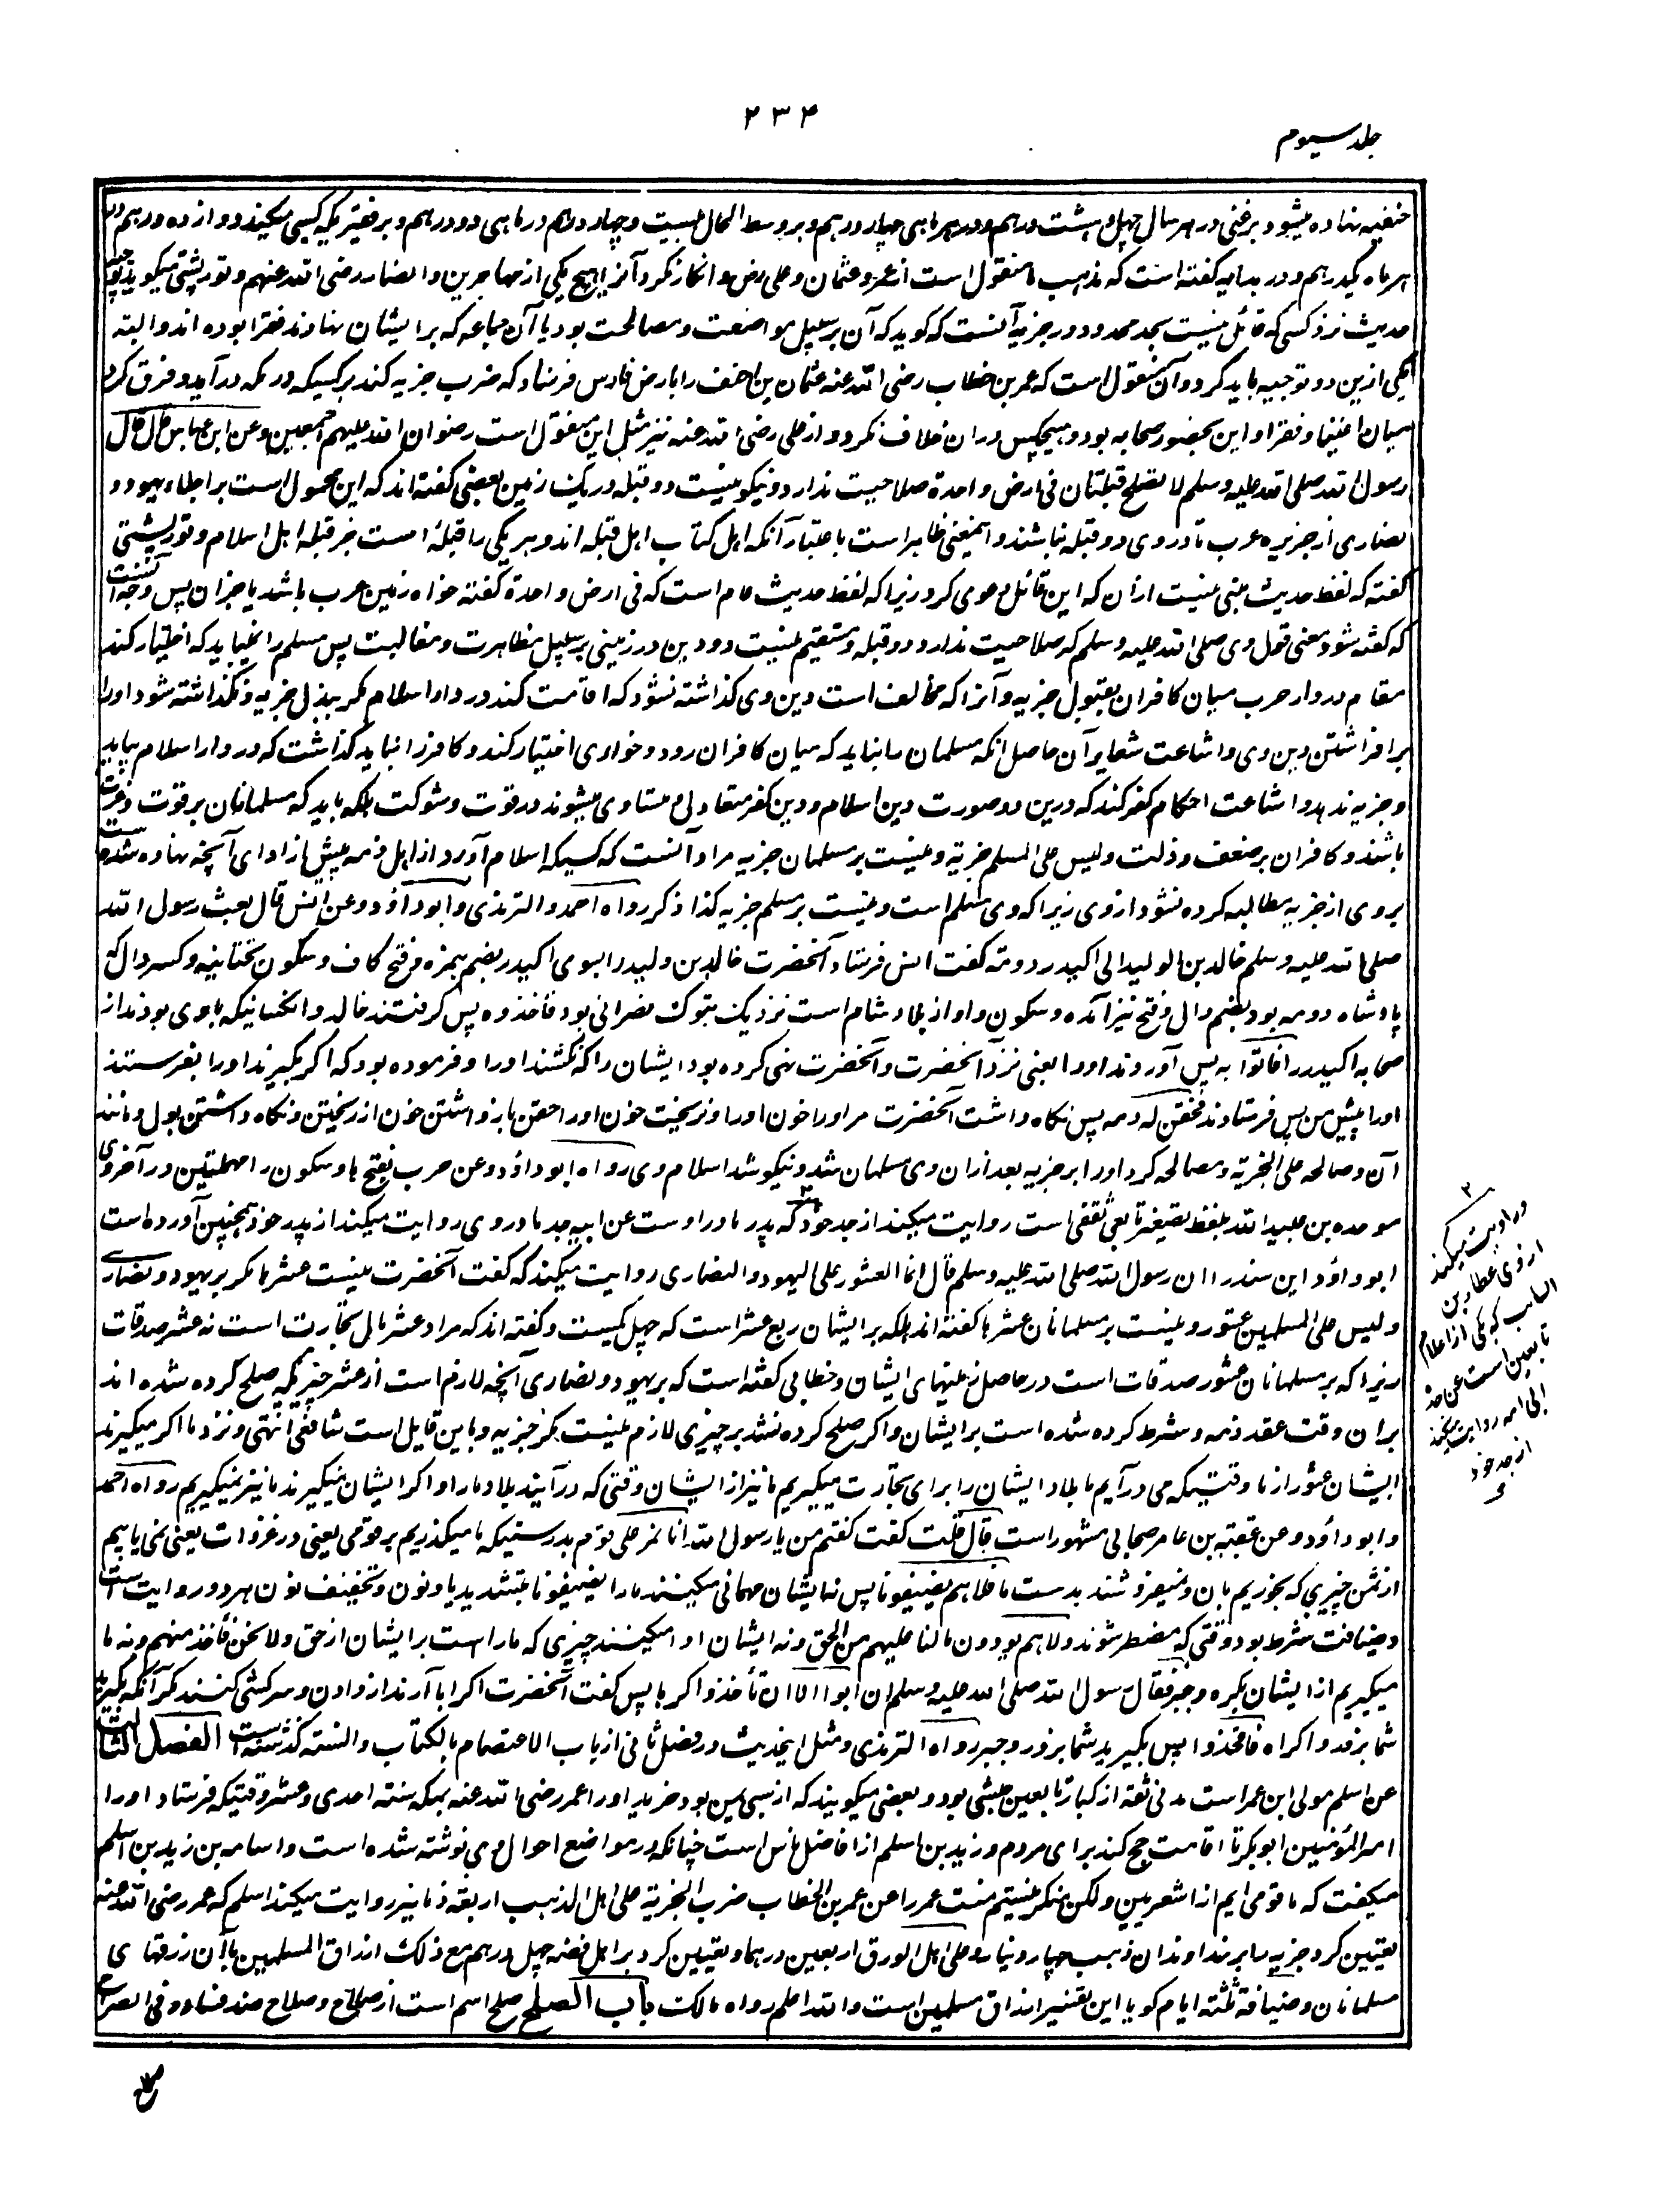 ۲۳۴
جلد سیوم
حنفیه نهاده میشود بر غنی در هر سال چهل و هشت درهم و در هر ماهی چهار درهم و بر وسط الحال بیست و چهار درهم در ماهی دو درهم و بر فقیریکه کسبی میکند دوازده درهم در
هر ماه یکدرهم و در هدایه گفته است که مذهب ما منقول است از عمر و عثمان و علی رض و انکار نکرد آنرا هیچ یکی از مهاجرین و انصار رضی الله عنهم و تورپشتی میگوید توجیه
حدیث نزد کسی که قائل نیست بحد محدود در جزیه آنست که گوید که آن بر سبیل مواضعت و مصالحت بود یا آن جماعه که بر ایشان نهادند فقرا بوده اند و البته
یکی ازین دو توجیه باید کرد و آن منقول است که عمر بن خطاب رضی الله عنه عثمان بن احنف را بارض فارس فرستاد که ضرب جزیه کند بر کسیکه در آمد و فرق کرد
میان اغنیا و فقرا و این بحضور صحابه بود و هیچکس در ان خلاف نکرد و از علی رضی الله عنه نیز مثل این منقول است رضوان الله علیهم اجمعین وعن ابن عباس قال قال
رسول الله صلی الله علیه وسلم لا تصلح قبلتان فی ارض واحدة صلاحیت ندارد و نیکو نیست دو قبله در یک زمین بعضی گفته اند که این محمول است بر اجلاء یهود و
نصاری از جزیره عرب تا در وی دو قبله نباشند و اینمعنی ظاهر است باعتبار آنکه اهل کتاب اهل قبله اند و هر یکی را قبلۀ است جز قبله اهل اسلام و تورپشتی
گفته که لفظ حدیث مبنی نیست از ان که این قائل دعوی کرد زیرا که لفظ حدیث عام است که فی ارض واحدة گفته خواه زمین عرب باشد یا جز ان پس وجه آنست
که گفته شود معنی قول وی صلی الله علیه وسلم که صلاحیت ندارد دو قبله و مستقیم نیست دو دین در زمینی بر سبیل مظاهرت و مغالبت پس مسلم را نمیباید که اختیار کند
مقام در دار حرب میان کافران بقبول جزیه و آنرا که مخالف است دین وی گذاشته نشود که اقامت کند در دار اسلام مگر ببذل جزیه و نگذاشته شود او را
بر افراشتن دین وی و اشاعت شعایر آن حاصل انکه مسلمان را نباید که میان کافران رود و خواری اختیار کند و کافر را نباید گذاشت که در دار اسلام بیاید
و جزیه ندهد و اشاعت احکام کفر کند که درین دو صورت دین اسلام و دین کفر متعادل و متساوی میشوند در قوت و شوکت بلکه باید که مسلمانان بر قوت و عزت
باشند و کافران بر ضعف و ذلت ولیس علی المسلم جزیة و نیست بر مسلمان جزیه مراد آنست که کسیکه اسلام آورد از اهل ذمه پیش از ادای آنچه نهاده شده است
بر وی از جزیه مطالبه کرده نشود از وی زیرا که وی مسلم است و نیست بر مسلم جزیه کذا ذکر رواه احمد والترمذی وابوداؤد وعن انس قال بعث رسول الله
صلی الله علیه وسلم خالد بن الولید الی اکیدر دومة گفت انس فرستاد آنحضرت خالد بن ولید را بسوی اکیدر بضم همزه و فتح کاف و سکون تحتانیه و کسر دال که
پادشاه دومه بود بضم دال و فتح نیز آمده و سکون واو از بلاد شام است نزدیک تبوک نصرانی بود فاخذوه پس گرفتند خالد و انکسانیکه با وی بودند از
صحابه اکیدر را فاتوا به پس آوردند او را یعنی نزد آنحضرت و آنحضرت نهی کرده بود ایشان را که نکشند او را و فرموده بود که اگر بگیرند او را بفرستند
او را پیش من پس فرستادند فحقن له دمه پس نگاه داشت آنحضرت مر او را خون او را و نریخت خون او را حقن باز داشتن خون از ریختن و نگاه داشتن بول و مانند
آن وصالحه علی الجزیة و مصالحه کرد او را بر جزیه بعد ازان وی مسلمان شد و نیکو شد اسلام وی رواه ابوداؤد وعن حرب بفتح حا و سکون را مهملتین در آخر وی
موحده بن عبید الله بلفظ تصغیر تابعی ثقفی است روایت میکند از جد خود که پدر مادر اوست عن ابیه جد مادر وی روایت میکند از پدر خود همچنین آورده است
ابوداؤد این سند را ان رسول الله صلی الله علیه وسلم قال انما العشور علی الیهود والنصاری روایت میکند که گفت آنحضرت نیست عشرها مگر بر یهود و نصاری
ولیس علی المسلمین عشور و نیست بر مسلمانان عشرها گفته اند بلکه بر ایشان ربع عشر است که چهل یکیست و گفته اند که مراد عشر مال تجارت است نه عشر صدقات
زیرا که بر مسلمانان عشور صدقات است در حاصل زمینهای ایشان و خطابی گفته است که بر یهود و نصاری آنچه لازم است از عشر چیزیکه صلح کرده شده اند
بران وقت عقد ذمه و شرط کرده شده است بر ایشان و اگر صلح کرده نشد بر چیزی لازم نیست مگر جزیه و باین قایل است شافعی انتهی و نزد ما اگر میگیرند
ایشان عشور از ما وقتیکه می درآیم ما بلاد ایشان را برای تجارت میگیریم ما نیز از ایشان وقتی که درآیند بلاد ما را و اگر ایشان نمیگیرند ما نیز نمیگیریم رواه احمد
وابوداؤد وعن عقبة بن عامر صحابی مشهور است قال قلت گفت گفتم من یا رسول الله انا نمر علی قوم بدرستیکه ما میگذریم بر قومی یعنی در غزوات یعنی نمی یابیم
از ثمن چیزی که بخریم بان و نمیفروشند بدست ما فلا هم یضیفونا پس نه ایشان مهمانی میکنند ما را یضیفونا بتشدید یا و نون و تخفیف نون هر دو روایت است
و ضیافت شرط بود وقتی که مضطر شوند ولا هم یؤدون ما لنا علیهم من الحق و نه ایشان ادا میکنند چیزی که ما را است بر ایشان از حق ولا نحن نأخذ منهم و نه ما
میگیریم از ایشان بکره و جبر فقال رسول الله صلی الله علیه وسلم ان ابوا الا ان تأخذوا کرها پس گفت آنحضرت اگر ابا آرند از دادن و سرکشی کنند مگر آنکه بگیرید
شما بزور و اکراه فخذوا پس بگیرید شما بزور و جبر رواه الترمذی و مثل اینحدیث در فصل ثانی از باب الاعتصام بالکتاب والسنة گذشته است الفصل الثالث
عن اسلم مولی ابن عمر است مدنی ثقه از کبار تابعین حبشی بود و بعضی میگویند که از سبی یمن بود خرید او را عمر رضی الله عنه بمکه سنه احدی و عشر وقتیکه فرستاد او را
امیر المؤمنین ابوبکر تا اقامت حج کند برای مردم و زید بن اسلم از افاضل ناس است چنانکه در مواضع احوال وی نوشته شده است و اسامه بن زید بن اسلم
میگفت که ما قومی ایم از اشعریین و لکن منکر نیستیم منت عمر را عن عمر بن الخطاب ضرب الجزیة علی اهل الذهب اربعة دنانیر روایت میکند اسلم که عمر رضی الله عنه
تعیین کرد جزیه را بر خداوندان ذهب چهار دینار وعلی اهل الورق اربعین درهما و تعیین کرد بر اهل فضه چهل درهم مع ذلک ارزاق المسلمین با آن رزقهای
مسلمانان وضیافة ثلثة ایام گویا این تفسیر ارزاق مسلمین است والله اعلم رواه مالک باب الصلح صلح اسم است از صلاح و صلاح ضد فساد و فی الصراح
۲
و روایت میکند
از وی عطا بن
السایب که یکی از اعلام
تابعین است عن جده
ابی امه روایت میکند
از جد خود